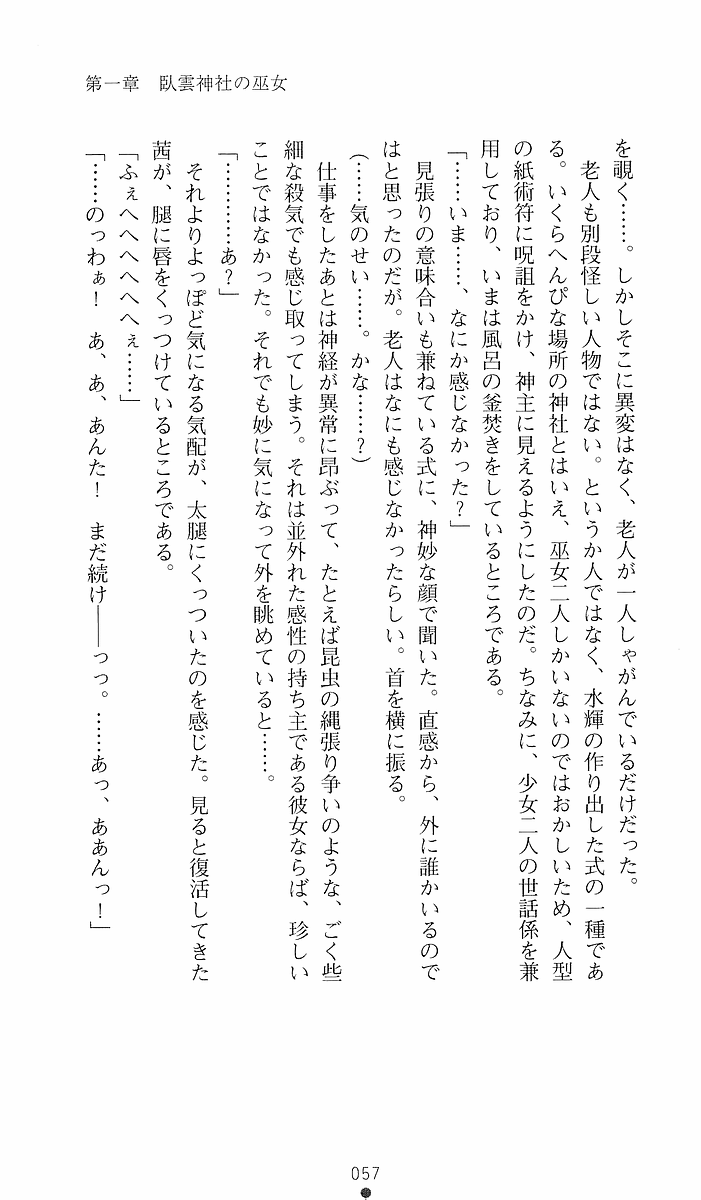 第一章　臥雲神社の巫女
を覗く……。しかしそこに異変はなく、老人が一人しゃがんでいるだけだった。
　老人も別段怪しい人物ではない。というか人ではなく、水輝の作り出した式の一種であ
る。いくらへんぴな場所の神社とはいえ、巫女二人しかいないのではおかしいため、人型
の紙術符に呪詛をかけ、神主に見えるようにしたのだ。ちなみに、少女二人の世話係を兼
用しており、いまは風呂の釜焚きをしているところである。
「……いま……、なにか感じなかった？」
　見張りの意味合いも兼ねている式に、神妙な顔で聞いた。直感から、外に誰かいるので
はと思ったのだが。老人はなにも感じなかったらしい。首を横に振る。
（……気のせい……。かな……？）
　仕事をしたあとは神経が異常に昂ぶって、たとえば昆虫の縄張り争いのような、ごく些
細な殺気でも感じ取ってしまう。それは並外れた感性の持ち主である彼女ならば、珍しい
ことではなかった。それでも妙に気になって外を眺めていると……。
「…………あ？」
　それよりよっぽど気になる気配が、太腿にくっついたのを感じた。見ると復活してきた
茜が、腿に唇をくっつけているところである。
「ふぇへへへへへへぇ……」
「……のっわぁ！　あ、あ、あんた！　まだ続け――っっ。……あっ、ああんっ！」
057